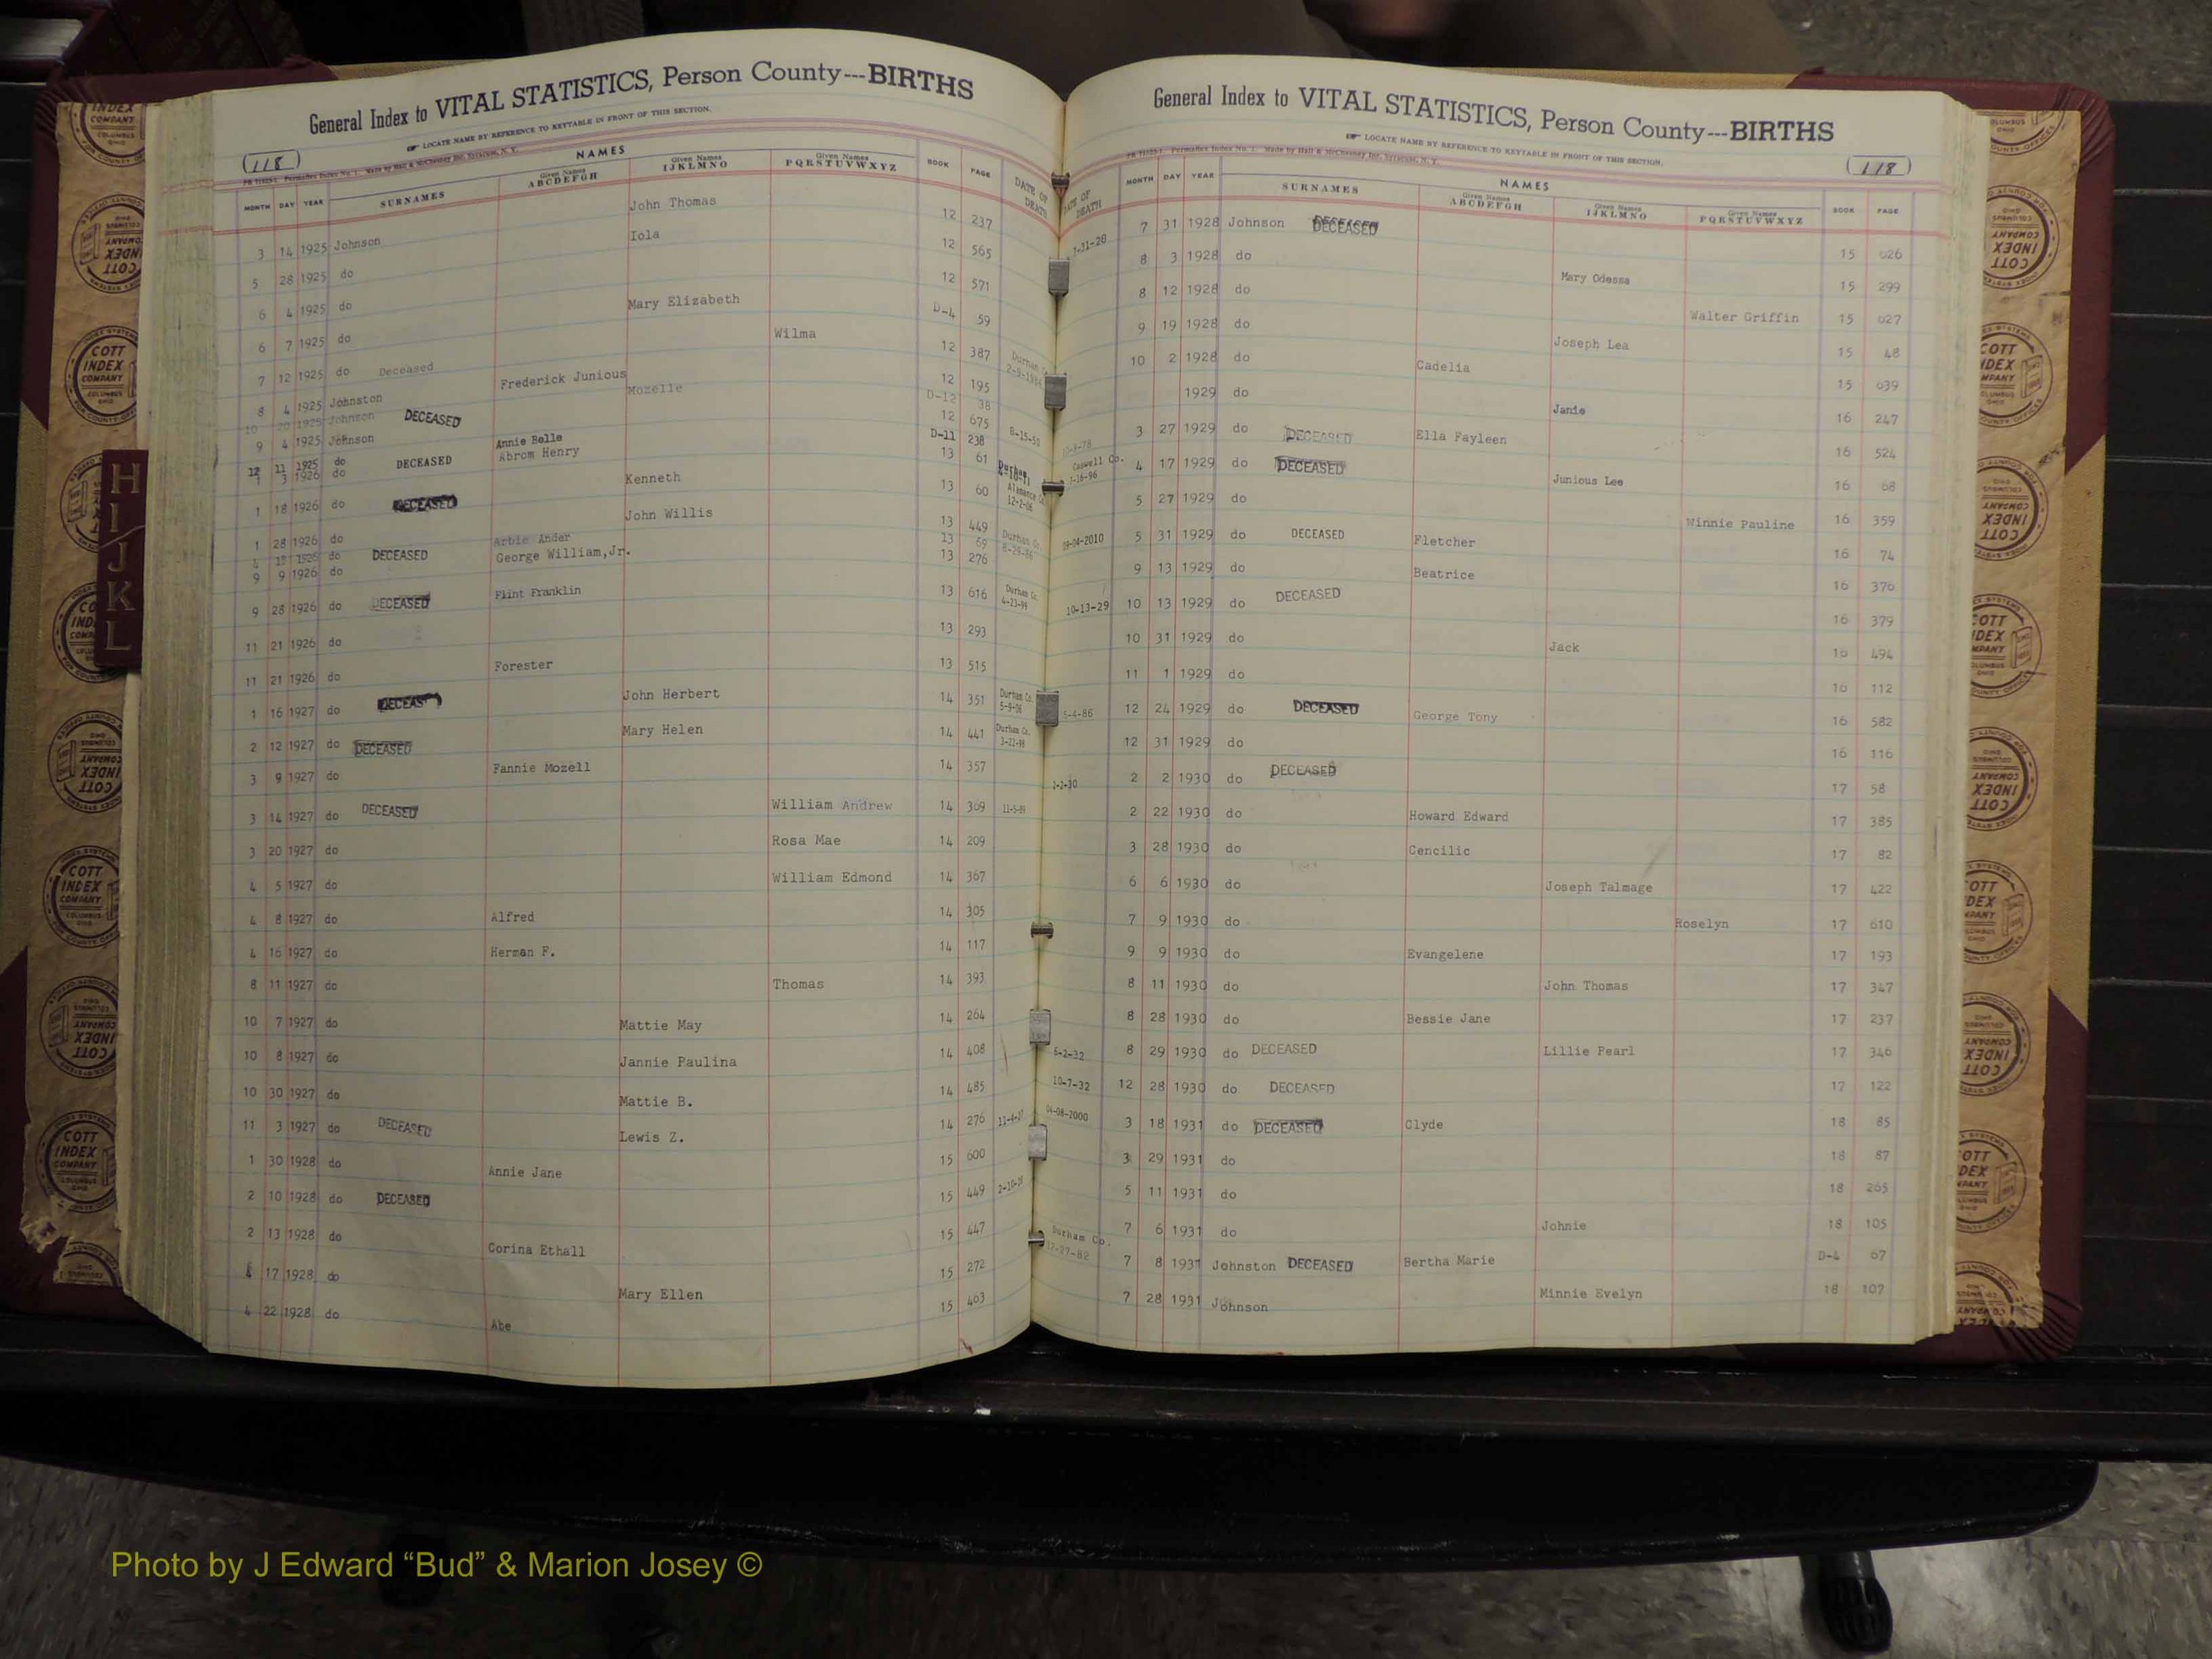 General Index to VITAL STATISTICS, Person County---BIRTHS
LOCATE NAME BY REFERENCE TO KEYTABLE IN FRONT OF THIS SECTION.
(118)
NAMES
MONTH DAY YEAR SURNAMES Given Names ABCDEFGH Given Names IJKLMNO Given Names PQRSTUVWXYZ BOOK PAGE DATE OF DEATH
3 14 1925 Johnson John Thomas 12 237
5 28 1925 do Iola 12 565
6 4 1925 do 12 571
6 7 1925 do Mary Elizabeth D-4 59
7 12 1925 do Deceased Wilma 12 387 Durham
8 4 1925 Johnston Frederick Junious 12 195
10 20 1925 Johnson DECEASED Mozelle D-12 38
9 4 1925 Johnson 12 675 8-15-50
12 11 1925 do DECEASED Annie Belle D-11 238 Durham
1 3 1926 do Abrom Henry 13 61
1 18 1926 do DECEASED Kenneth 13 60 Alamance Co. 12-2-06
1 28 1926 do John Willis 13 449
4 15 1926 do DECEASED Arbie Ander 13 69 Durham Co. 8-29-86
9 9 1926 do George William, Jr. 13 276
9 28 1926 do DECEASED Flint Franklin 13 616 Durham Co. 4-23-99
11 21 1926 do 13 293
11 21 1926 do Forester 13 515
1 16 1927 do DECEASED John Herbert 14 351 Durham Co. 5-9-06
2 12 1927 do DECEASED Mary Helen 14 441 Durham Co. 3-21-98
3 9 1927 do Fannie Mozell 14 357
3 14 1927 do DECEASED William Andrew 14 369 11-5-89
3 20 1927 do Rosa Mae 14 209
4 5 1927 do William Edmond 14 367
4 8 1927 do Alfred 14 305
4 16 1927 do Herman F. 14 117
8 11 1927 do Thomas 14 393
10 7 1927 do Mattie May 14 264
10 8 1927 do Jannie Paulina 14 408
10 30 1927 do Mattie B. 14 485
11 3 1927 do DECEASED Lewis Z. 14 276 11-4-27
1 30 1928 do Annie Jane 15 600
2 10 1928 do DECEASED 15 449 2-10-28
2 13 1928 do Corina Ethall 15 447
17 1928 do Mary Ellen 15 272
4 22 1928 do Abe 15 463
General Index to VITAL STATISTICS, Person County---BIRTHS
LOCATE NAME BY REFERENCE TO KEYTABLE IN FRONT OF THIS SECTION.
(118)
NAMES
DATE OF DEATH MONTH DAY YEAR SURNAMES Given Names ABCDEFGH Given Names IJKLMNO Given Names PQRSTUVWXYZ BOOK PAGE
7-31-28 7 31 1928 Johnson DECEASED 15 626
8 3 1928 do Mary Odessa 15 299
8 12 1928 do Walter Griffin 15 627
9 19 1928 do Joseph Lea 15 48
10 2 1928 do Cadelia 15 639
1929 do Janie 16 247
10-9-78 3 27 1929 do DECEASED Ella Fayleen 16 524
Caswell Co. 7-16-96 4 17 1929 do DECEASED Junious Lee 16 68
5 27 1929 do Winnie Pauline 16 359
09-04-2010 5 31 1929 do DECEASED Fletcher 16 74
9 13 1929 do Beatrice 16 376
10-13-29 10 13 1929 do DECEASED 16 379
10 31 1929 do Jack 16 494
11 1 1929 do 16 112
5-4-86 12 24 1929 do DECEASED George Tony 16 582
12 31 1929 do 16 116
2-2-30 2 2 1930 do DECEASED 17 58
2 22 1930 do Howard Edward 17 385
3 28 1930 do Cencilic 17 82
6 6 1930 do Joseph Talmage 17 422
7 9 1930 do Roselyn 17 610
9 9 1930 do Evangelene 17 193
8 11 1930 do John Thomas 17 347
8 28 1930 do Bessie Jane 17 237
6-2-32 8 29 1930 do DECEASED Lillie Pearl 17 346
10-7-32 12 28 1930 do DECEASED 17 122
04-08-2000 3 18 1931 do DECEASED Clyde 18 85
3 29 1931 do 18 87
5 11 1931 do 18 265
7 6 1931 do Johnie 18 105
Durham Co. 12-27-82 7 8 1931 Johnston DECEASED Bertha Marie D-4 67
7 28 1931 Johnson Minnie Evelyn 18 107
H I J K L
COTT INDEX COMPANY COLUMBUS OHIO
Photo by J Edward “Bud” & Marion Josey ©